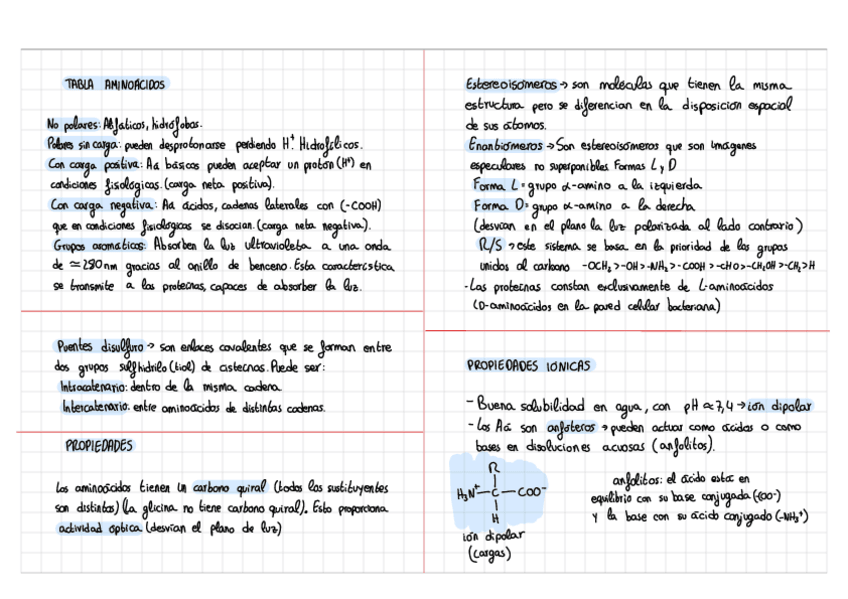 TABLA AMINOÁCIDOS
No polares: Alifáticos, hidrófobos.
Polares sin carga: pueden desprotonarse perdiendo H⁺. Hidrofílicos.
Con carga positiva: Aá básicos pueden aceptar un protón (H⁺) en
condiciones fisiológicas. (carga neta positiva).
Con carga negativa: Aá ácidos, cadenas laterales con (-COOH)
que en condiciones fisiológicas se disocian. (carga neta negativa).
Grupos aromáticos: Absorben la luz ultravioleta a una onda
de ≃ 280 nm gracias al anillo de benceno. Esta característica
se transmite a las proteínas, capaces de absorber la luz.
Puentes disulfuro → son enlaces covalentes que se forman entre
dos grupos sulfhidrilo (tiol) de cisteínas. Puede ser:
Intracatenario: dentro de la misma cadena
Intercatenario: entre aminoácidos de distintas cadenas.
PROPIEDADES
Los aminoácidos tienen un carbono quiral (todos los sustituyentes
son distintos) (la glicina no tiene carbono quiral). Esto proporciona
actividad óptica (desvían el plano de luz)
Estereoisómeros → son moléculas que tienen la misma
estructura pero se diferencian en la disposición espacial
de sus átomos.
Enantiómeros → Son estereoisómeros que son imágenes
especulares no superponibles. Formas L y D
Forma L = grupo α-amino a la izquierda
Forma D = grupo α-amino a la derecha
(desvían en el plano la luz polarizada al lado contrario)
R/S → este sistema se basa en la prioridad de los grupos
unidos al carbono -OCH₂ > -OH > -NH₂ > -COOH > -CHO > -CH₂OH > -CH₃ > H
- Las proteínas constan exclusivamente de L-aminoácidos
(D-aminoácidos en la pared celular bacteriana)
PROPIEDADES IÓNICAS
- Buena solubilidad en agua, con pH ≃ 7,4 → ión dipolar
- Los Aá son anfóteros → pueden actuar como ácidos o como
bases en disoluciones acuosas (anfolitos).
R
H₃N⁺ — C — COO⁻
H
ión dipolar
(cargas)
anfolitos: el ácido está en
equilibrio con su base conjugada (COO⁻)
y la base con su ácido conjugado (-NH₃⁺)